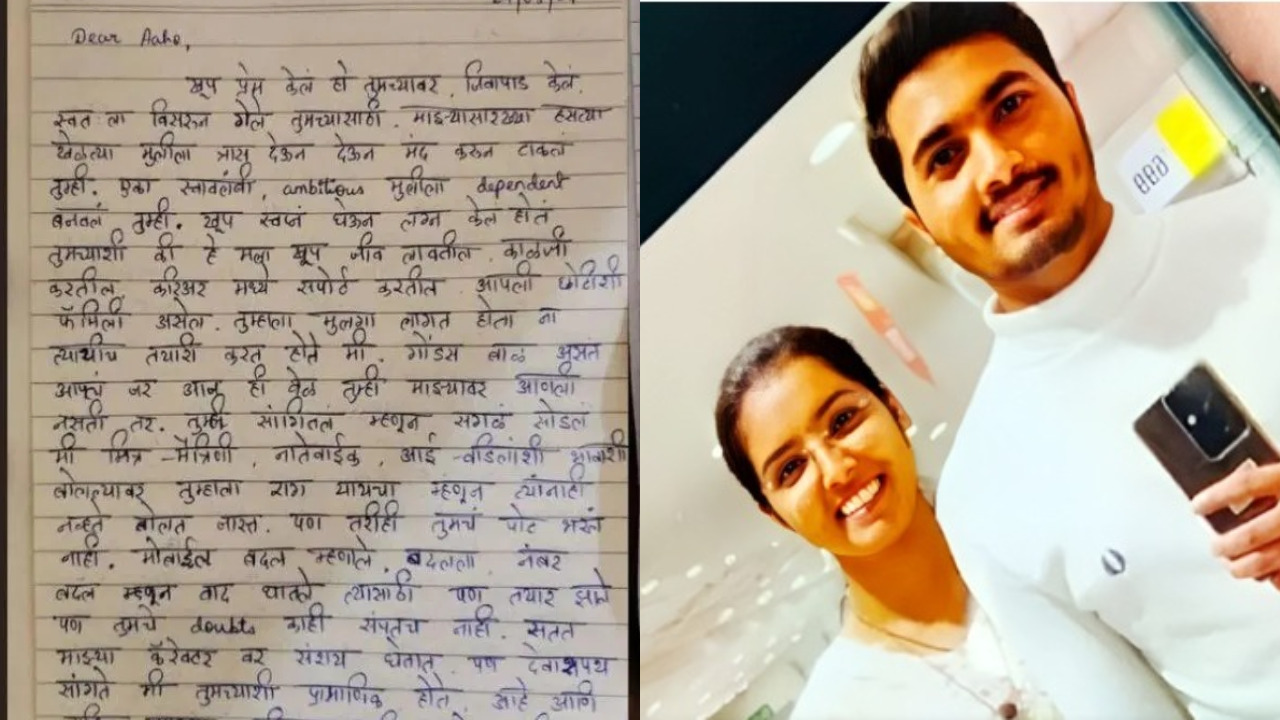 Dear Aaho,
खूप प्रेम केलं हो तुमच्यावर. जिवापाड केलं.
स्वतः ला विसरून गेले तुमच्यासाठी. माझ्यासारख्या हसत्या
खेळत्या मुलीला त्रास देऊन देऊन मंद करुन टाकलं
तुम्ही. एका स्वावलंबी, ambitious मुलीला dependent
बनवलं तुम्ही. खूप स्वप्नं घेऊन लग्न केल होतं
तुमच्याशी की हे मला खूप जीव लावतील. काळजी
करतील. करिअर मध्ये सपोर्ट करतील. आपली छोटीशी
फॅमिली असेल. तुम्हाला मुलगा लागत होता ना
त्याचीच तयारी करत होते मी. गोंडस बाळ असतं
आपलं जर आज ही वेळ तुम्ही माझ्यावर आणली
नसती तर. तुम्ही सांगितलं म्हणून सगळं सोडलं
मी मित्र-मैत्रिणी, नातेवाईक, आई-वडिलांशी भावाशी
बोलल्यावर तुम्हाला राग यायचा म्हणून त्यांनाही
नव्हते बोलत जास्त. पण तरीही तुमचं पोट भरलं
नाही. मोबाईल बदल म्हणाले, बदलला. नंबर
बदल म्हणून वाद घातले त्यासाठी पण तयार झाले
पण तुमचे doubts काही संपतच नाही. सतत
माझ्या कॅरेक्टर वर संशय घेतात. पण देवाशपथ
सांगते मी तुमच्याशी प्रामाणिक होते, आहे आणि